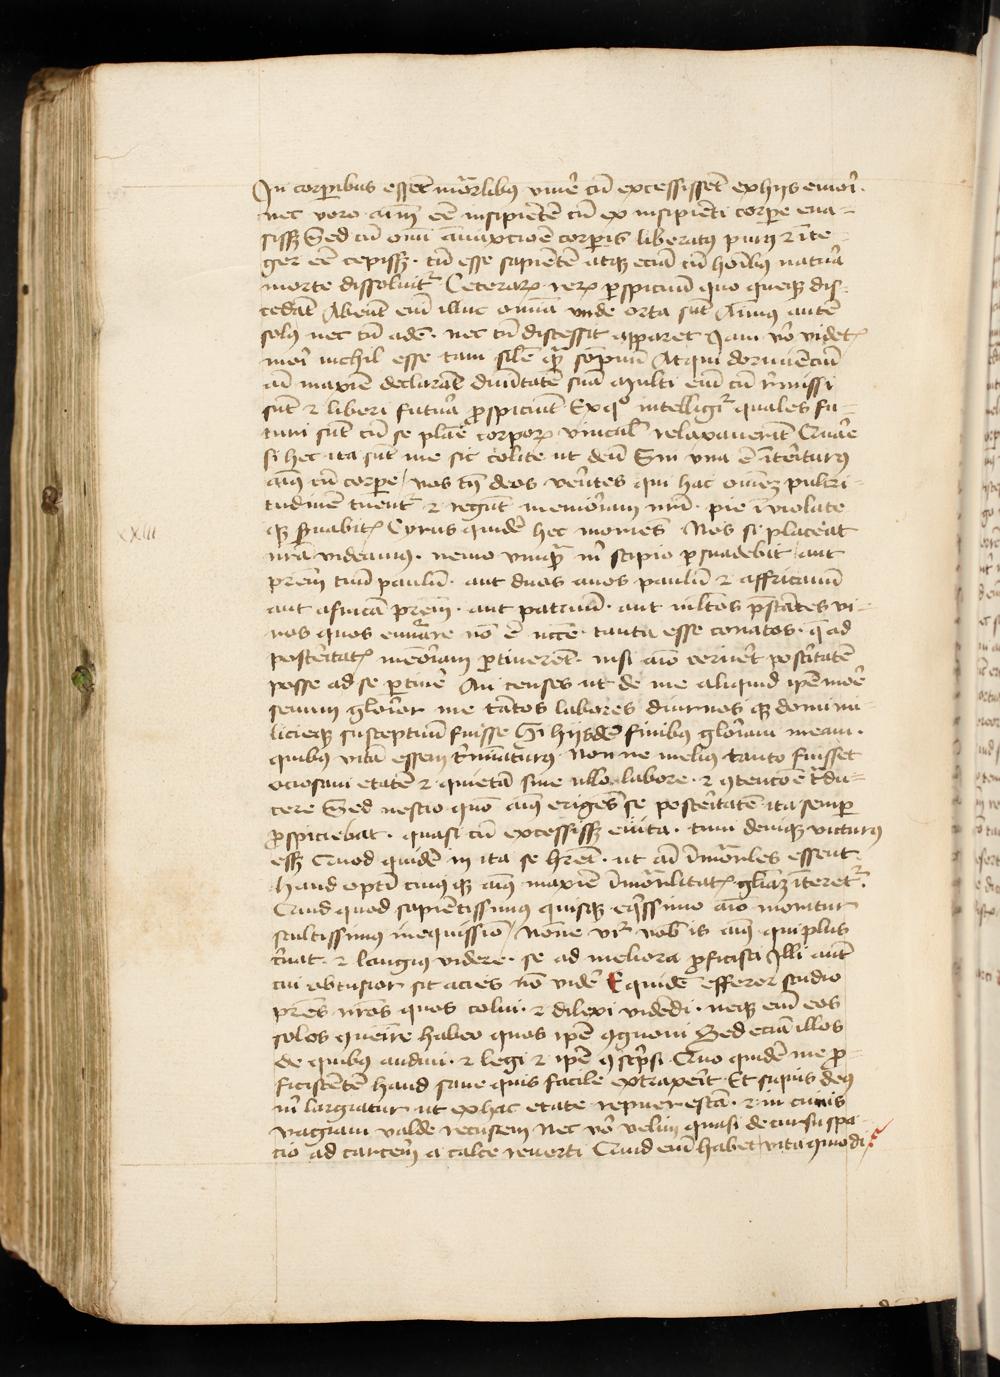 In corporibus essent mortalibus viuere cum excessissent ex hijs emori.
nec vero animum esse insipientem cum ex insipienti corpore eua-
sisset Sed cum omni ammixtione corporis liberatus purus et inte-
ger esse cepisset. tum esse sapientem atque eciam cum hominis natura
morte dissoluitur Ceterarum rerum perspicuum quo queque dis-
cedant Abeunt enim illuc omnia vnde orta sunt Animus autem
solus nec cum adest. nec cum discessit apparet Iam vero videtis
morti nichil esse tam simile quam sompnum Atqui dormiencium
animi maxime declarant diuinitatem suam Multi enim cum remissi
sunt et liberi futura prospiciunt Ex quo intelligitur quales fu-
turi sunt cum se plane corporis vinculis relaxauerint Quare
si hec ita sunt me sic colite ut deum Sin vna est interiturus
animus cum corpore / vos tamen deos verentes qui hac omnem pulcri-
tudinem tuentur et regunt memoriam nostri. pie inviolate
que seruabitis Cyrus quidem hec moriens Nos si placeat
nostra videamus. nemo vnquam michi scipio persuadebit / aut
patrem tuum paulum. aut duos auos paulum et affricanum
aut africani patrem. aut patruum. aut multos prestantes vi-
ros quos enumerare non est necesse. tanta esse conatos. que ad
posteritatis memoriam pertinerent. nisi animo cernerent posteritatem
posse ad se pertinere An censes ut de me aliquid ipse more
senum glorier me tantos labores diurnos que domi mi-
licieque suscepturum fuisse Si hijsdem finibus gloriam meam.
quibus vitam essem terminaturus. Nonne melius tanto fuisset
ociosam etatem et quietam sine vllo labore. et contentione tradu-
cere Sed nescio quomodo animus erigens se posteritatem ita semper
prospiciebat. quasi cum excessisset e vita. tum denique victurus
esset Quod quidem ni ita se haberet. ut animi immortales essent.
haud optimi cuiusque animus maxime immortalitatis gloriam niteretur.
Quid quod sapientissimus quisque equissimo animo moritur
stultissimus inequissimo / Nonne videtur vobis is animus qui plus
cernat. et longius videre. se ad meliora proficisci Illi autem
cui obtusior sit acies non videre Equidem efferor studio
patres vestros quos colui. et dilexi videndi. neque enim eos
solos conuenire habeo quos ipse cognoui Sed eciam illos
de quibus audiui. et legi et ipse conscripsi. Quo quidem me pro-
ficiscentem haud sane quis facile extraxerit Et siquis deus
michi largiatur ut ex hac etate repuerescam. et in cunis
vagiam valde recusem Nec vero velim quasi decursu spa-
cio ad carcerem a calce reuerti Quid enim habet vita commodi?
xxiii